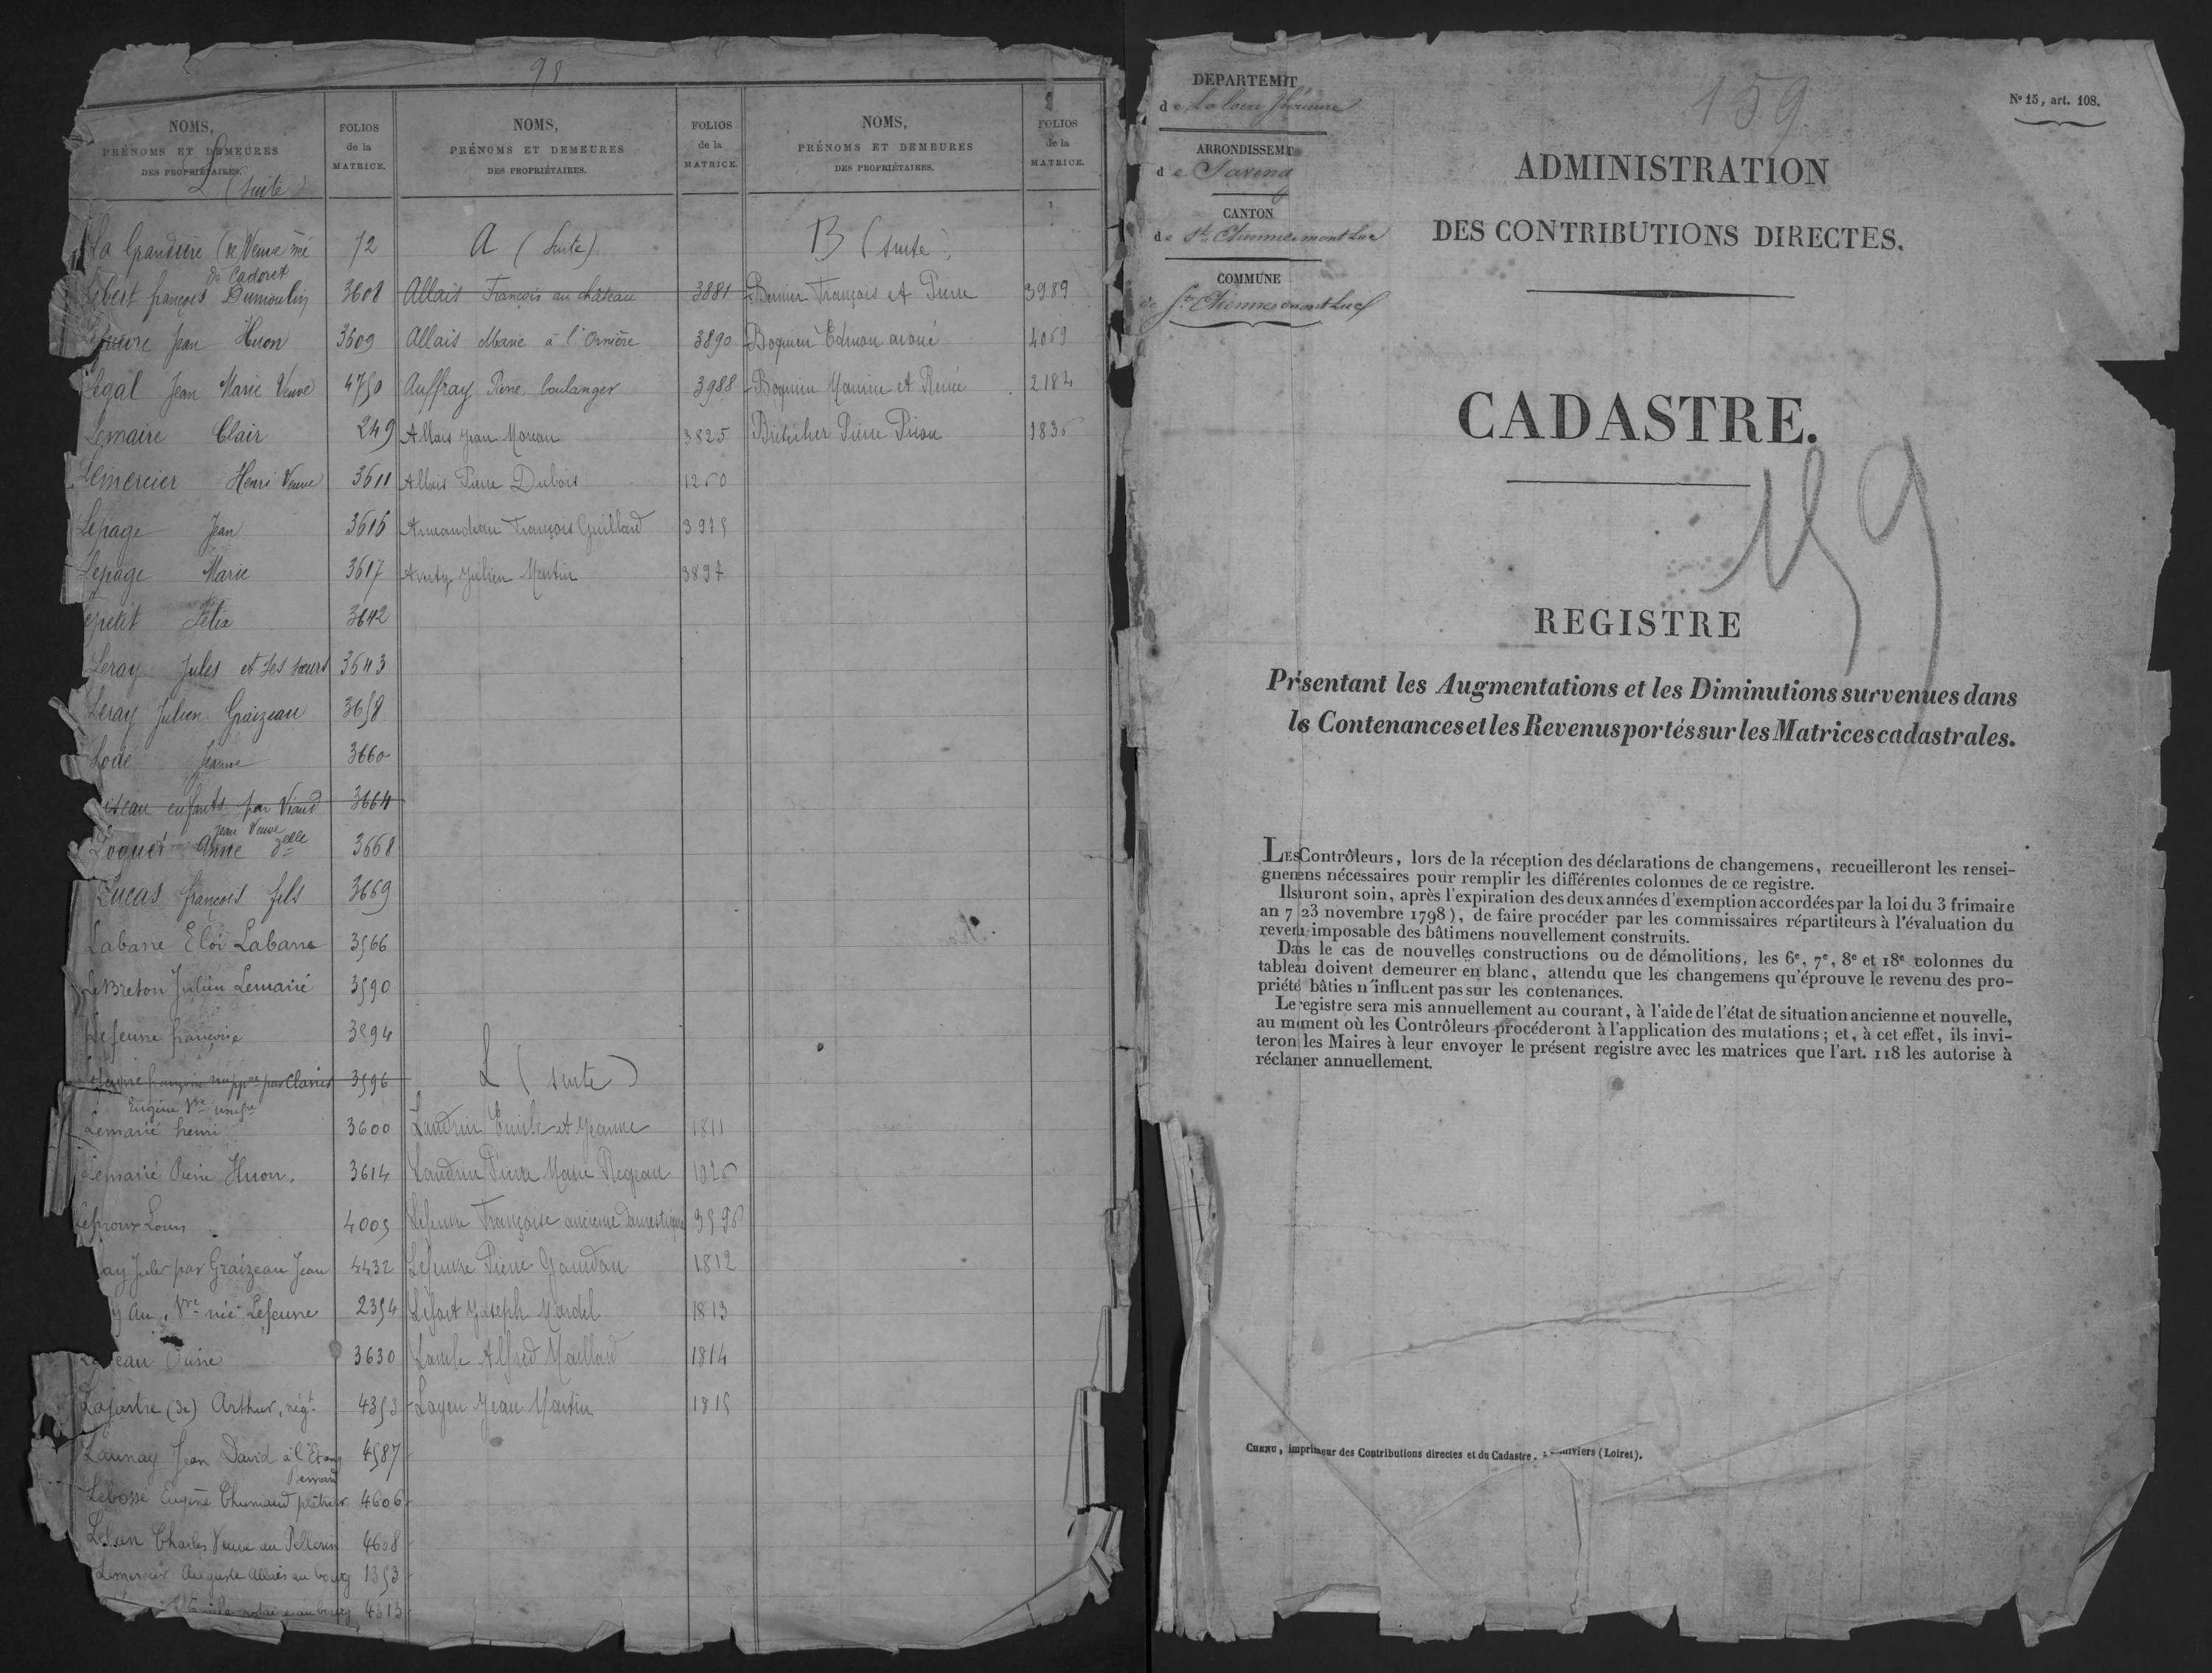 98
NOMS,
PRÉNOMS ET DEMEURES
DES PROPRIÉTAIRES.
FOLIOS
de la
MATRICE.
L (suite)
La Grandière (de Veuve née
de Cadoret
72
Lebert françois Dumoulin 3608
Jean Huon 3609
Legal Jean Marie Veuve 4750
Lemaire Clair 249
Lemercier Henri Veuve 3611
Lepage Jean 3616
Lepage Marie 3617
Lepetit Félix 3642
Leray Jules et ses sœurs 3643
Leray Julien Graizeau 3658
Loué Jeanne 3660
enfants par Viaud 3664
Jean Veuve
Anne 3668
Lucas françois fils 3669
Labarre Eloi Labarre 3566
LeBreton Julien Lemarié 3590
Lefeuvre françoise 3594
Lefeuvre françoise par 3596
Eugène Vve
Lemarié henri 3600
Lemarié Pierre Huon. 3614
Leproux Louis 4005
ay Jules par Graizeau Jean 4432
Vve née Lefeuvre 2354
eau 3630
(de) Arthur, négt 4353
Launay Jean David à l'Etang 4587
Lebossé Eugène plâtrier 4606
Charles Veuve au Pellerin 4608
Lemercier Auguste au bourg 1353
notaire au bourg 4313
NOMS,
PRÉNOMS ET DEMEURES
DES PROPRIÉTAIRES.
FOLIOS
de la
MATRICE.
A (suite)
Allais François au château 3881
Allais Marie à l'Ornière 3890
Auffray Pierre, boulanger 3988
Allais Jean Moreau 3825
Allais Pierre Dubois 1260
François Guillard 3975
Averty Julien Martin 3897
L (suite)
Landrin Emile et Jeanne 1811
Landrin Pierre Marie 1026
Lefeuvre Françoise ancienne domestique 3596
Lefeuvre Pierre 1812
Joseph 1813
Alfred Maillard 1814
Loyen Jean Martin 1815
NOMS,
PRÉNOMS ET DEMEURES
DES PROPRIÉTAIRES.
FOLIOS
de la
MATRICE.
B (suite)
Bernier François et Pierre 3989
Boquien avoué 4069
Boquien Maurice et Renée 2184
Pierre Priou 1836
DEPARTEMIT
de La Loire Inférieure
ARRONDISSEMT
de Savenay
CANTON
de St Etienne mont Luc
COMMUNE
de St Etienne mont Luc
159
No 15, art. 108.
ADMINISTRATION
DES CONTRIBUTIONS DIRECTES.
CADASTRE.
159
REGISTRE
Prsentant les Augmentations et les Diminutions survenues dans
ls Contenances et les Revenus portés sur les Matrices cadastrales.
LES Contrôleurs, lors de la réception des déclarations de changemens, recueilleront les rensei-
gnemens nécessaires pour remplir les différentes colonnes de ce registre.
Ils auront soin, après l'expiration des deux années d'exemption accordées par la loi du 3 frimaire
an 7 23 novembre 1798), de faire procéder par les commissaires répartiteurs à l'évaluation du
revenu imposable des bâtimens nouvellement construits.
Dans le cas de nouvelles constructions ou de démolitions, les 6e, 7e, 8e et 18e colonnes du
tableau doivent demeurer en blanc, attendu que les changemens qu'éprouve le revenu des pro-
priété bâties n'influent pas sur les contenances.
Le registre sera mis annuellement au courant, à l'aide de l'état de situation ancienne et nouvelle,
au moment où les Contrôleurs procéderont à l'application des mutations; et, à cet effet, ils invi-
teron les Maires à leur envoyer le présent registre avec les matrices que l'art. 118 les autorise à
réclamer annuellement.
CHENU, imprimeur des Contributions directes et du Cadastre, (Loiret).